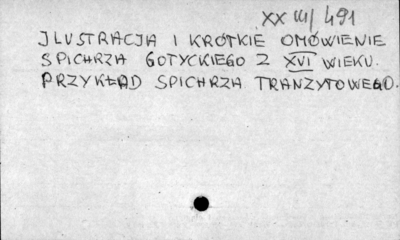 XX III/491
JLUSTRACJA I KRÓTKIE OMÓWIENIE
SPICHRZA GOTYCKIEGO Z XVI WIEKU.
PRZYKŁAD SPICHRZA TRANZYTOWEGO.